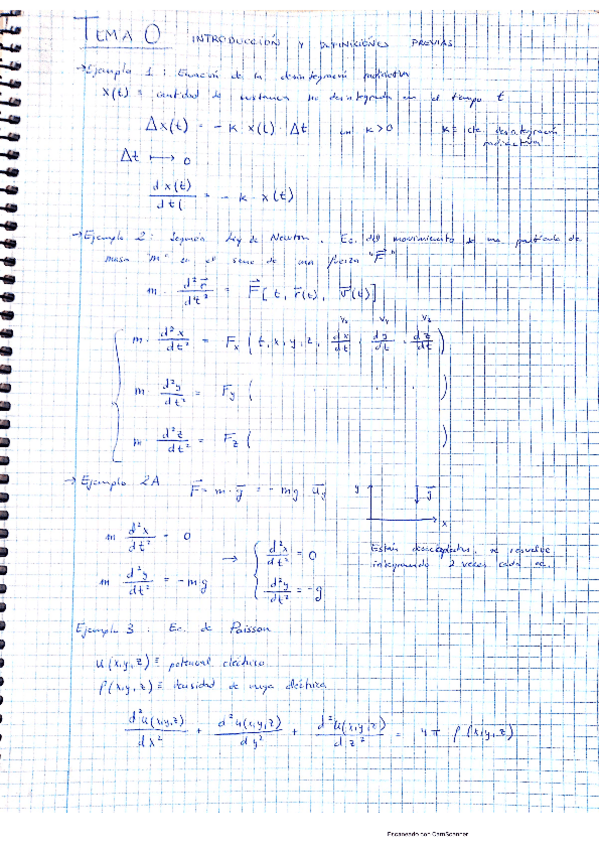 TEMA 0 INTRODUCCIÓN Y DEFINICIONES PREVIAS
→ Ejemplo 1: Ecuación de la desintegración radiactiva
x(t) ≡ cantidad de sustancia no desintegrada en el tiempo t
Δx(t) = - K x(t) Δt con K>0 K = cte desintegración radiactiva
Δt ⟼ 0
d x(t) / dt = - K · x(t)
→ Ejemplo 2: Segunda Ley de Newton. Ec. del movimiento de una partícula de
masa "m" en el seno de una fuerza "F⃗"
m · d²r⃗/dt² = F⃗ [t, r⃗(t), v⃗(t)]
Vx Vy Vz
m · d²x/dt² = Fx (t, x, y, z, dx/dt, dy/dt, dz/dt)
m · d²y/dt² = Fy ( ... . )
m · d²z/dt² = Fz ( )
→ Ejemplo 2A F⃗ = m · g⃗ = - mg u⃗y y ↓ g⃗ x
m d²x/dt² = 0 → d²x/dt² = 0
m d²y/dt² = - mg d²y/dt² = - g
Están desacopladas, se resuelve
integrando 2 veces cada ec.
Ejemplo 3 : Ec. de Poisson
u(x,y,z) ≡ potencial eléctrico
ρ(x,y,z) ≡ densidad de carga eléctrica
d²u(x,y,z)/dx² + d²u(x,y,z)/dy² + d²u(x,y,z)/dz² = 4π ρ(x,y,z)
Escaneado con CamScanner